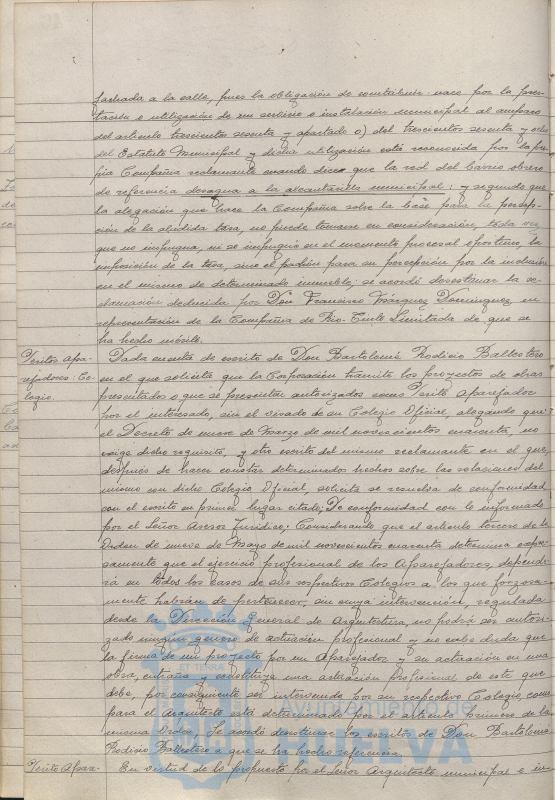 fachada a la calle, pues la obligación de contribuir nace por la pres-
tación o utilización de un servicio o instalación municipal al amparo
del artículo trescientos sesenta y apartado o) del trescientos sesenta y ocho
del Estatuto Municipal y dicha utilización está reconocida por la pro-
pia Compañía reclamante cuando dice que la red del barrio obrero
de referencia desagua a la alcantarilla municipal; y segundo que
la alegación que hace la Compañía sobre la base para la percep-
ción de la aludida tasa, no puede tomarse en consideración, toda vez
que no impugna, ni se impugnó en el momento procesal oportuno, la
imposición de la tasa, sino el padrón para su percepción por la inclusión
en el mismo de determinado inmueble; se acordó desestimar la re-
clamación deducida por Don Francisco Márquez Domínguez en
representación de la Compañía de Rio-Tinto Limitada de que se
ha hecho mérito.
Perito Apa-
rejadores: Co-
legio.
Dada cuenta de escrito de Don Bartolomé Rodicio Ballestero
en el que solicita que la Corporación tramite los proyectos de obras
presentados o que se presenten autorizados como Perito Aparejador
por el interesado, sin el visado de su Colegio Oficial, alegando que
el Decreto de nueve de Marzo de mil novecientos cuarenta, no
exige dicho requisito, y otro escrito del mismo reclamante en el que,
después de hacer constar determinados hechos sobre las relaciones del
mismo con dicho Colegio Oficial, solicita se resuelva de conformidad
con el escrito en primer lugar citado; De conformidad con lo informado
por el Señor Asesor Jurídico; Considerando que el artículo tercero de la
Orden de nueve de Mayo de mil novecientos cuarenta determina expre-
samente que el ejercicio profesional de los Aparejadores, dependa-
rá en todos los casos de sus respectivos Colegios a los que forzosa-
mente habrán de pertenecer, sin cuya intervención, regulada
desde la Dirección General de Arquitectura, no podrá ser autori-
zado ningún género de actuación profesional y no cabe duda que
la firma de un proyecto por un Aparejador y su actuación en una
obra, entraña y constituye una actuación profesional de este que
debe, por consiguiente ser intervenida por su respectivo Colegio, como
para el Arquitecto está determinado por el artículo primero de la
misma Orden; Se acordó desestimar los escritos de Don Bartolomé
Rodicio Ballestero a que se ha hecho referencia.
Perito Apare-
En virtud de lo propuesto por el Señor Arquitecto municipal e in-
Ayuntamiento de
HUELVA